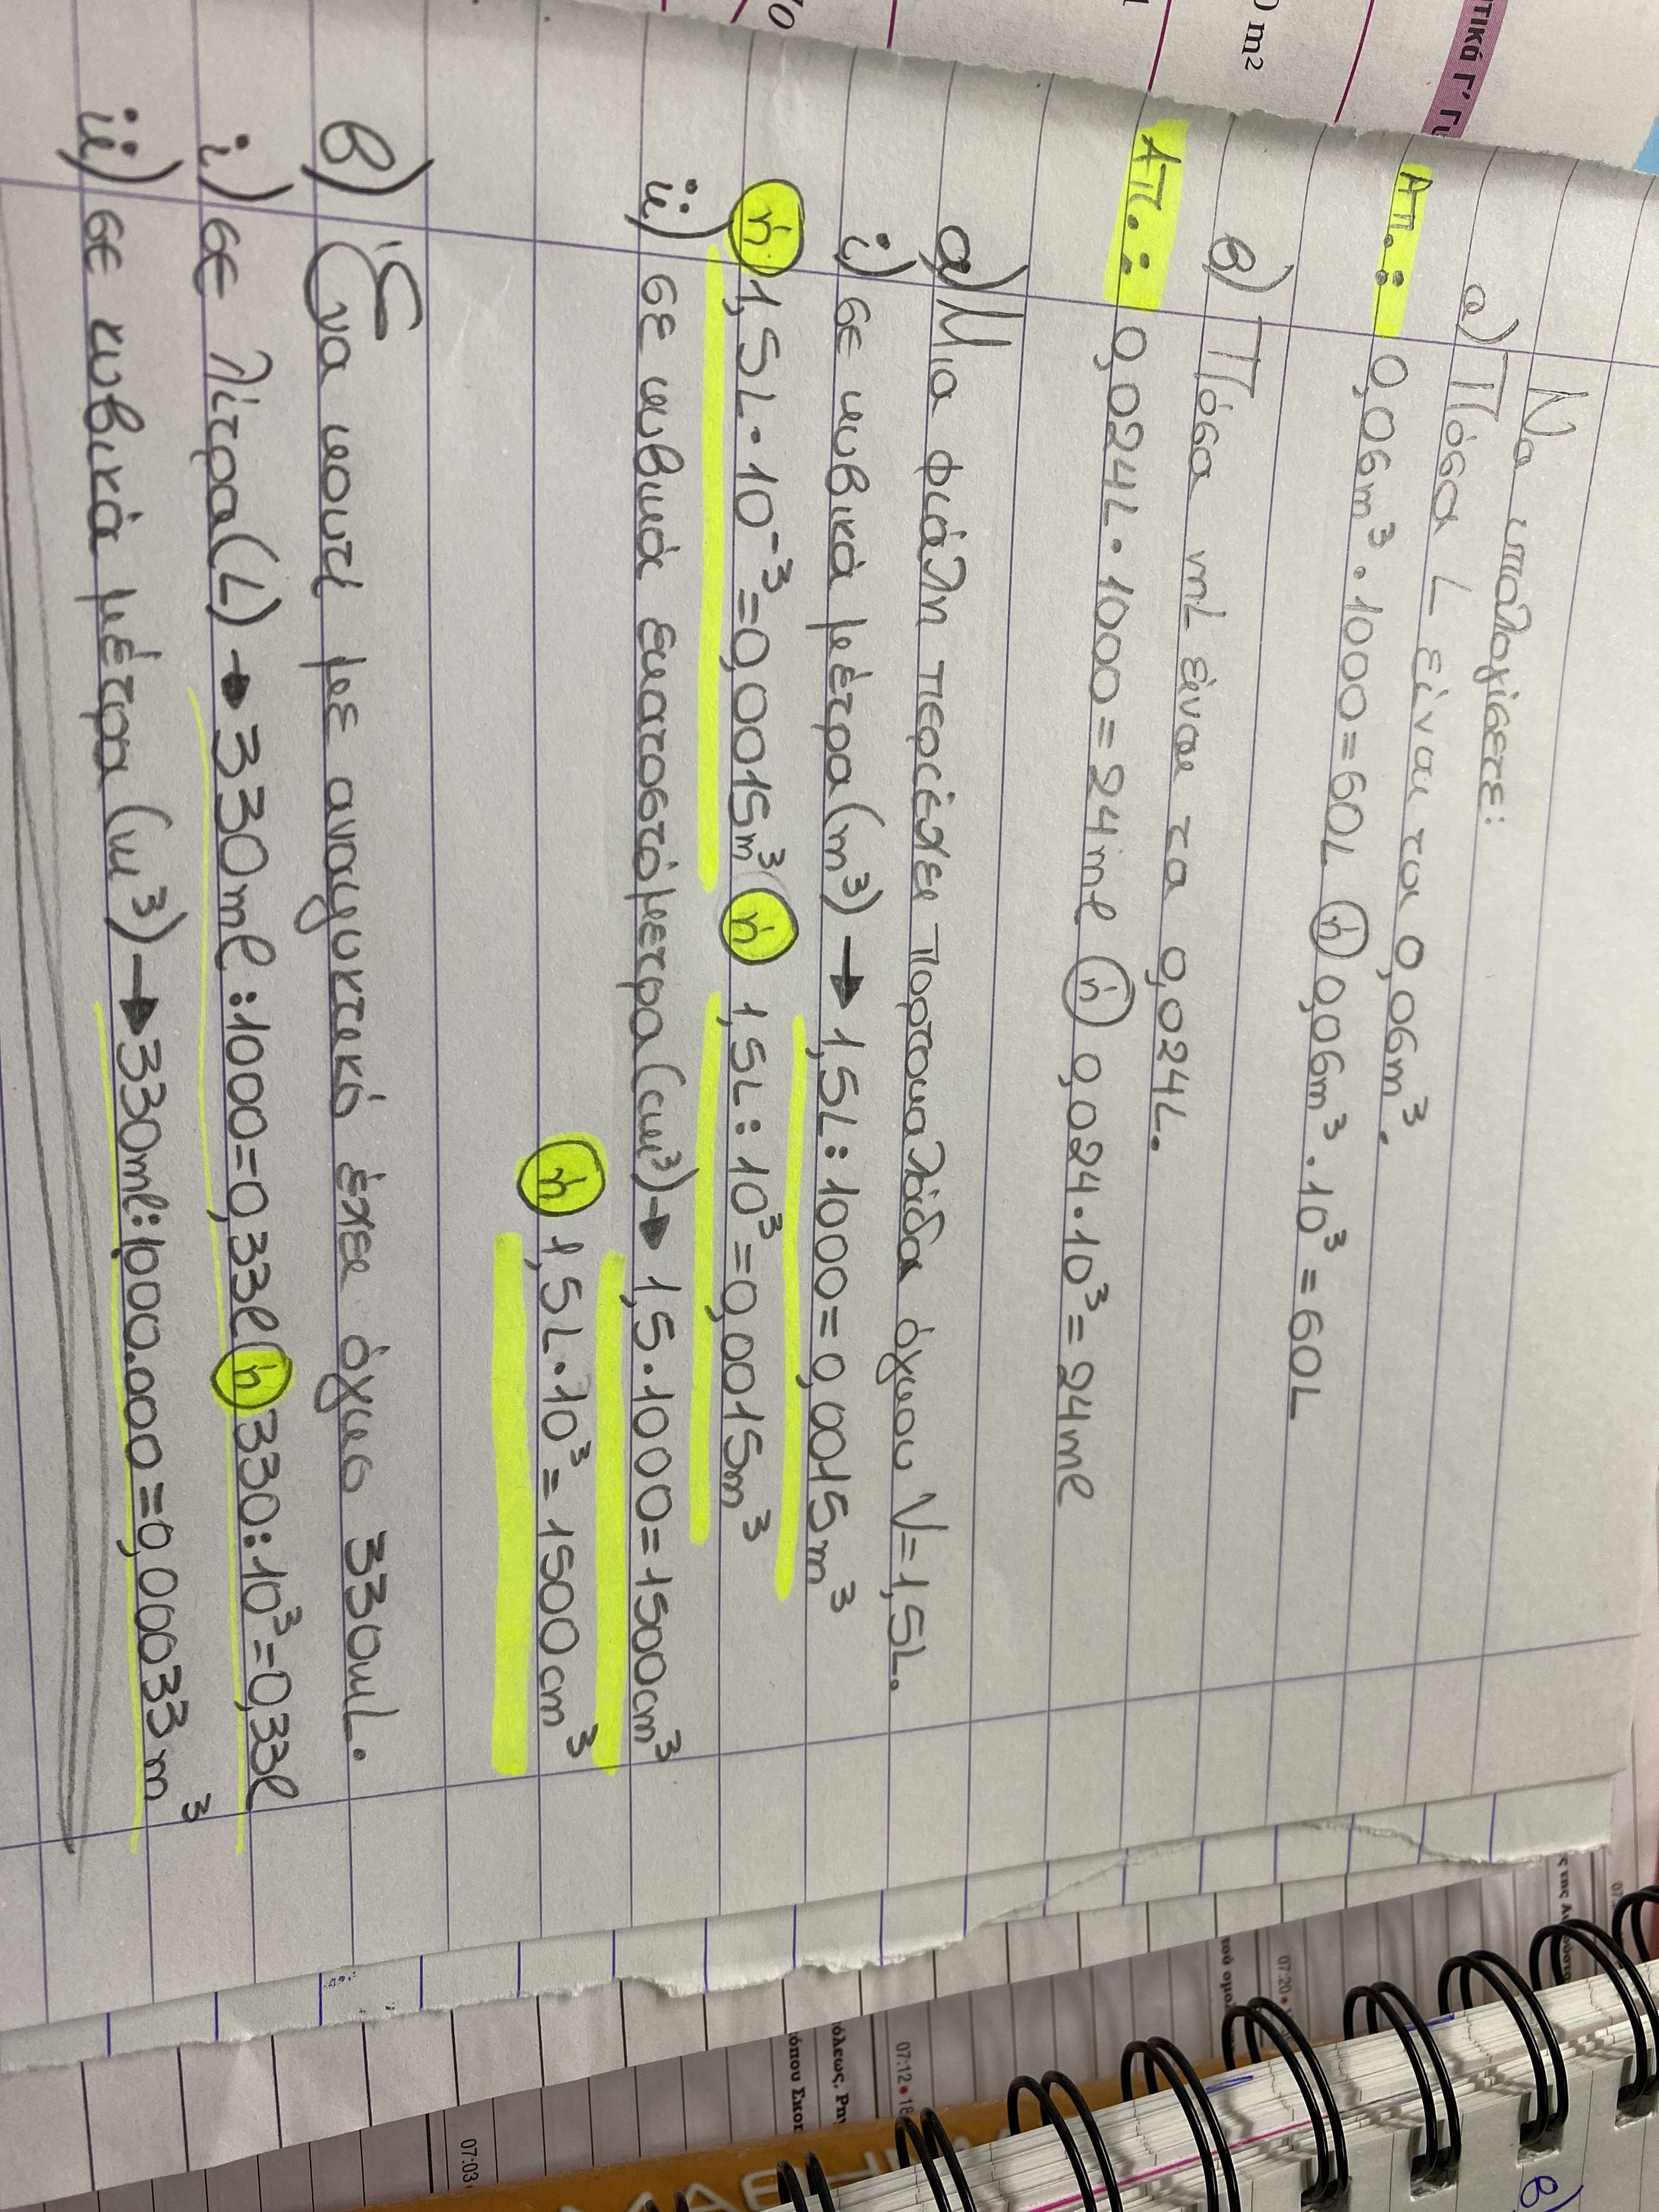 τικά Γ' Γυ
0 m²
Να υπολογίσετε:
α) Πόσα L είναι τα 0,06m³.
Απ.: 0,06m³·1000=60L ή 0,06m³·10³=60L
β) Πόσα mL είναι τα 0,024L.
Απ.: 0,024L·1000=24ml ή 0,024·10³=24ml
α) Μια φιάλη περιέχει πορτοκαλάδα όγκου V=1,5L.
i) σε κυβικά μέτρα(m³)→1,5L:1000=0,0015m³
ή 1,5L·10⁻³=0,0015m³ ή 1,5L:10³=0,0015m³
ii) σε κυβικά εκατοστόμετρα(cm³)→1,5·1000=1500cm³
ή 1,5L·10³=1500cm³
β) Ένα κουτί με αναψυκτικό έχει όγκο 330mL.
i) σε λίτρα(L)→330ml:1000=0,33l ή 330:10³=0,33l
ii) σε κυβικά μέτρα (m³)→330ml:1000.000=0,00033m³
07:20
07:12 • 18
όλεως, Ρη
όπου Σκοπ
07:03
ΜΑΘΗΜ
β)